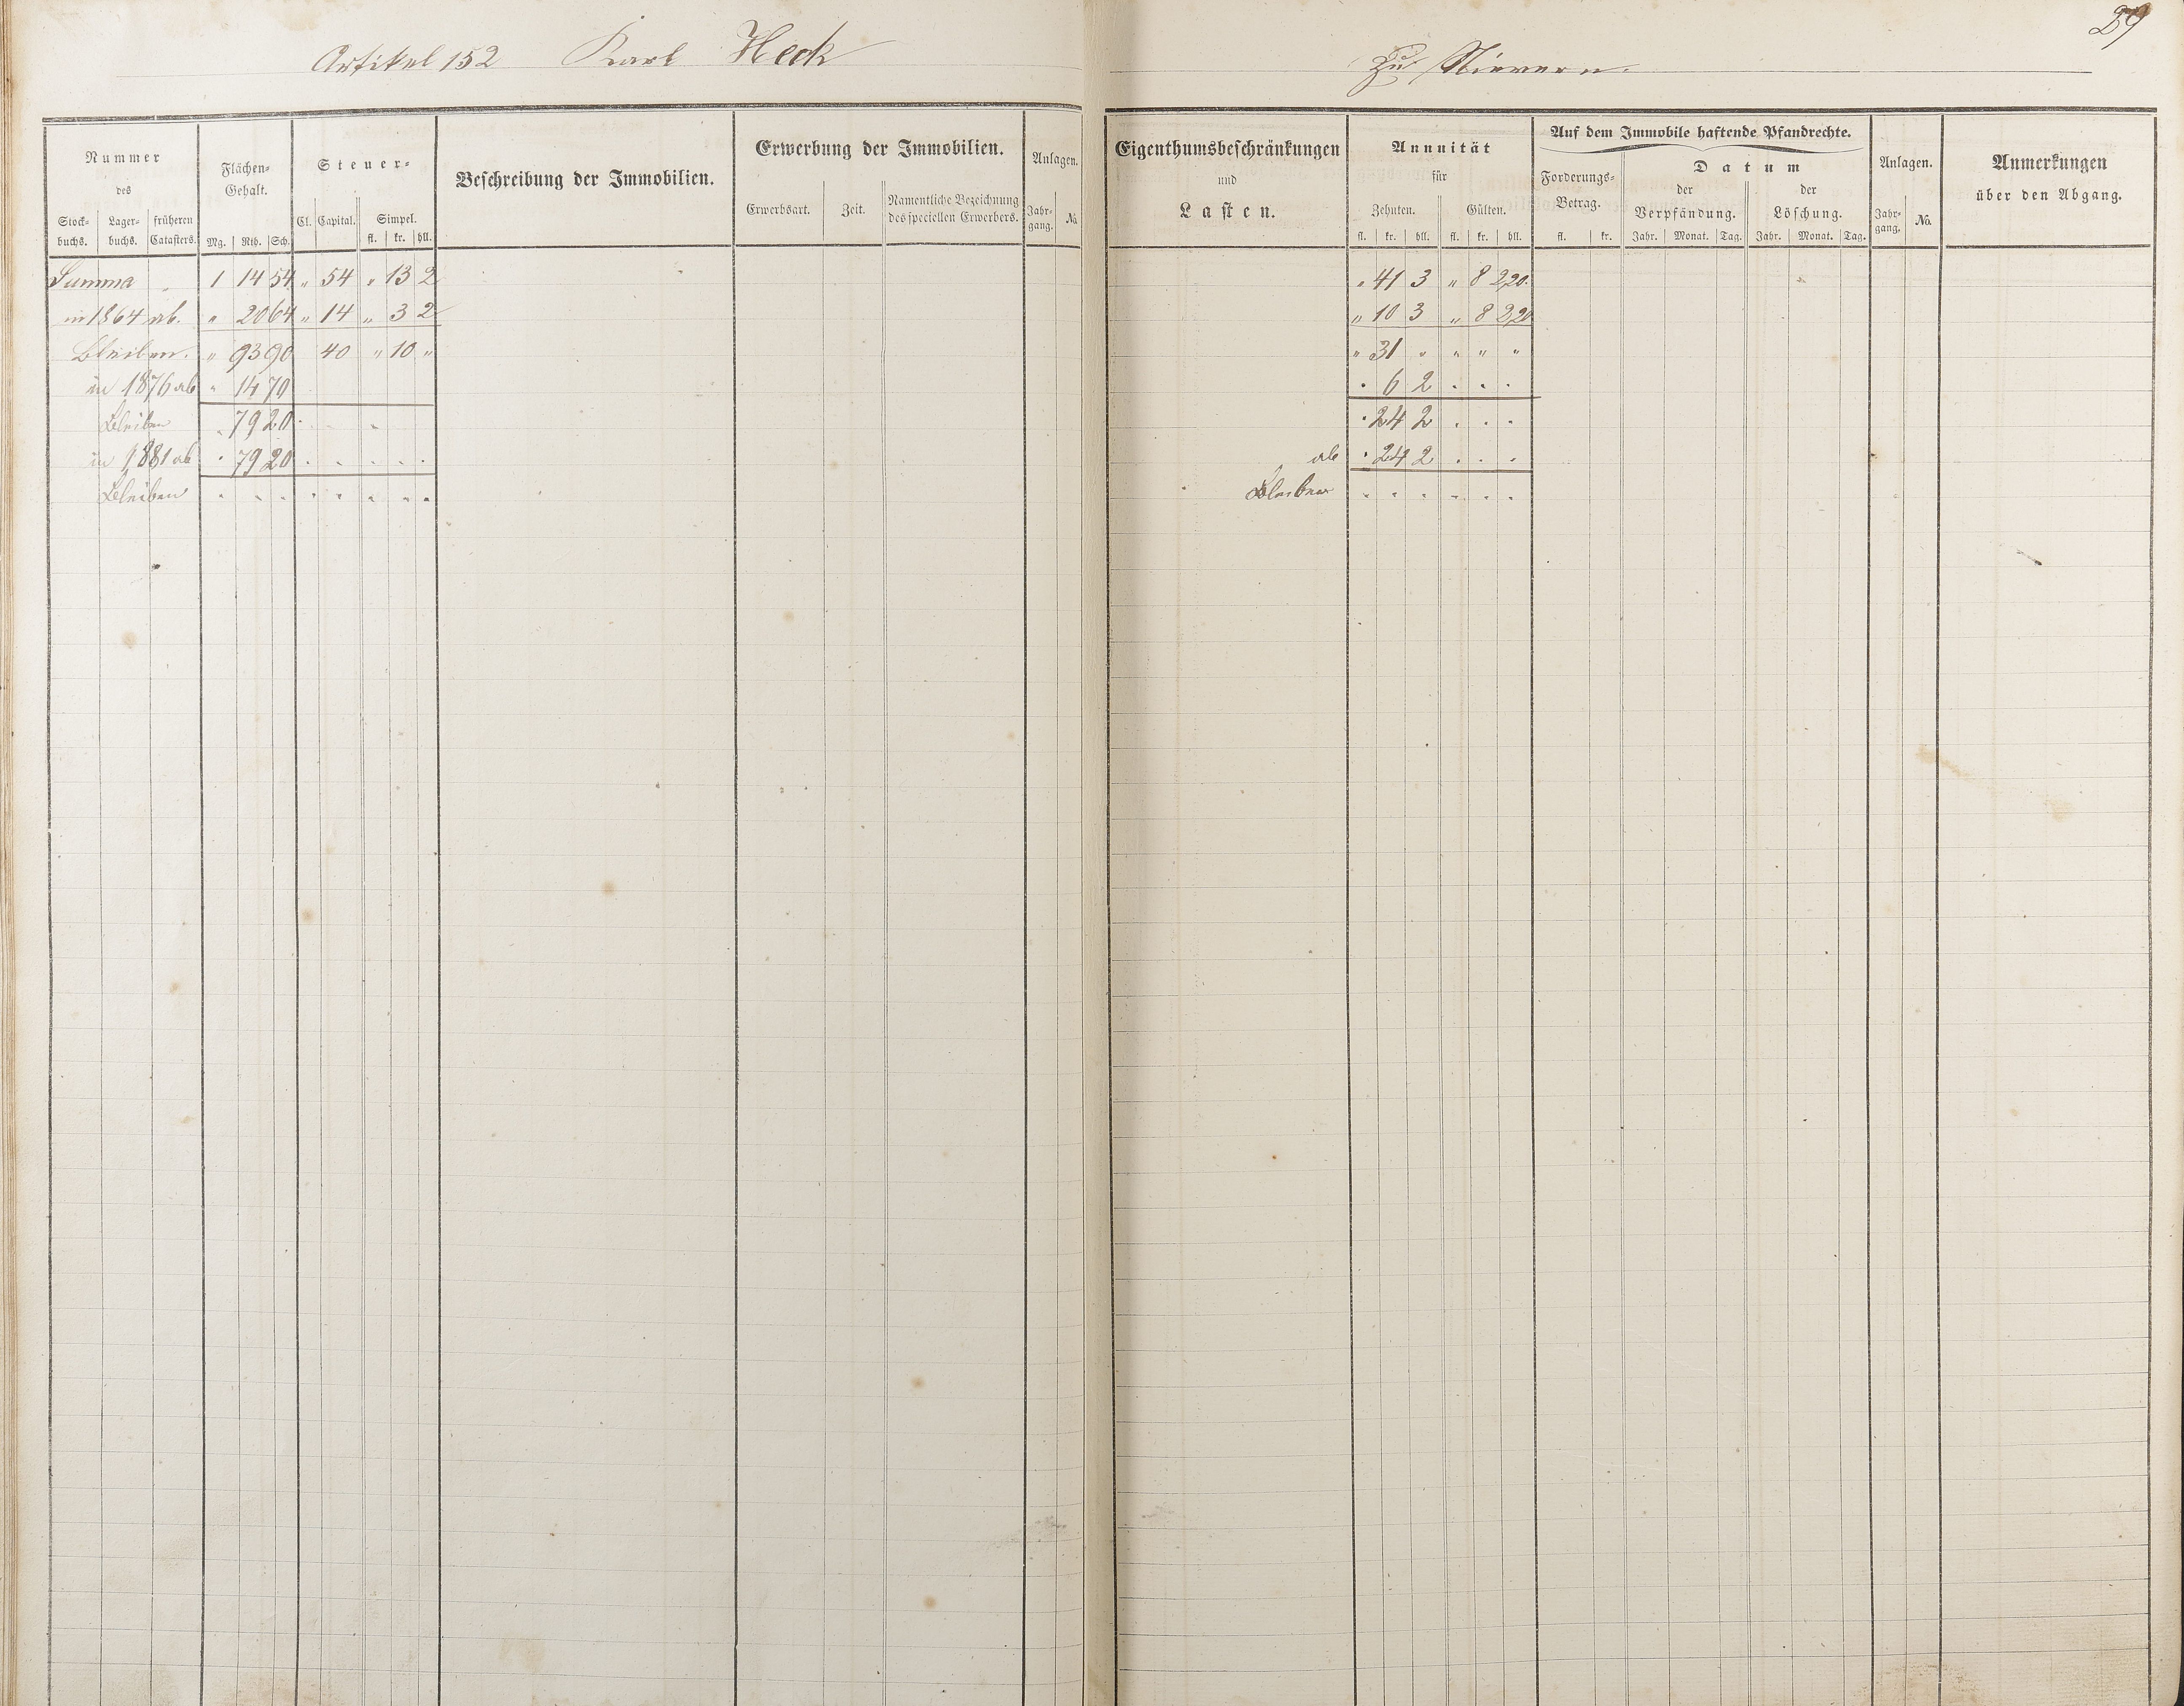 Artikel 152 Karl Heck
zu Nievern.
29
Nummer
des
Stock-
buchs.
Lager-
buchs.
früheren
Catasters.
Flächen-
Gehalt.
Mg. Rth. Sch.
Steuer-
Cl. Capital. Simpel.
fl. kr. hll.
Beschreibung der Immobilien.
Erwerbung der Immobilien.
Erwerbsart. Zeit.
Namentliche Bezeichnung
des speciellen Erwerbers.
Anlagen.
Jahr-
gang.
No.
Eigenthumsbeschränkungen
und
Lasten.
Annuität
für
Zehnten. Gülten.
fl. kr. hll. fl. kr. hll.
Auf dem Immobile haftende Pfandrechte.
Forderungs-
Betrag.
fl. kr.
Datum
der
Verpfändung.
der
Löschung.
Jahr. Monat. Tag. Jahr. Monat. Tag.
Anlagen.
Jahr-
gang.
No.
Anmerkungen
über den Abgang.
Summa 1 14 54 „ 54 „ 13 2 „ 41 3 „ 8 2,20.
in 1864 ab. „ 20 64 „ 14 „ 3 2 „ 10 3 „ 8 2,20
Bleiben. „ 93 90 40 „ 10 „ „ 31 „ „ „ „
in 1876 ab „ 14 70 . 6 2 . . .
Bleiben . 79 20 . . . 24 2 . . .
in 1881 ab . 79 20 . . . . . ab . 24 2 . . .
Bleiben . . . . . . . . Bleiben . . . . . .